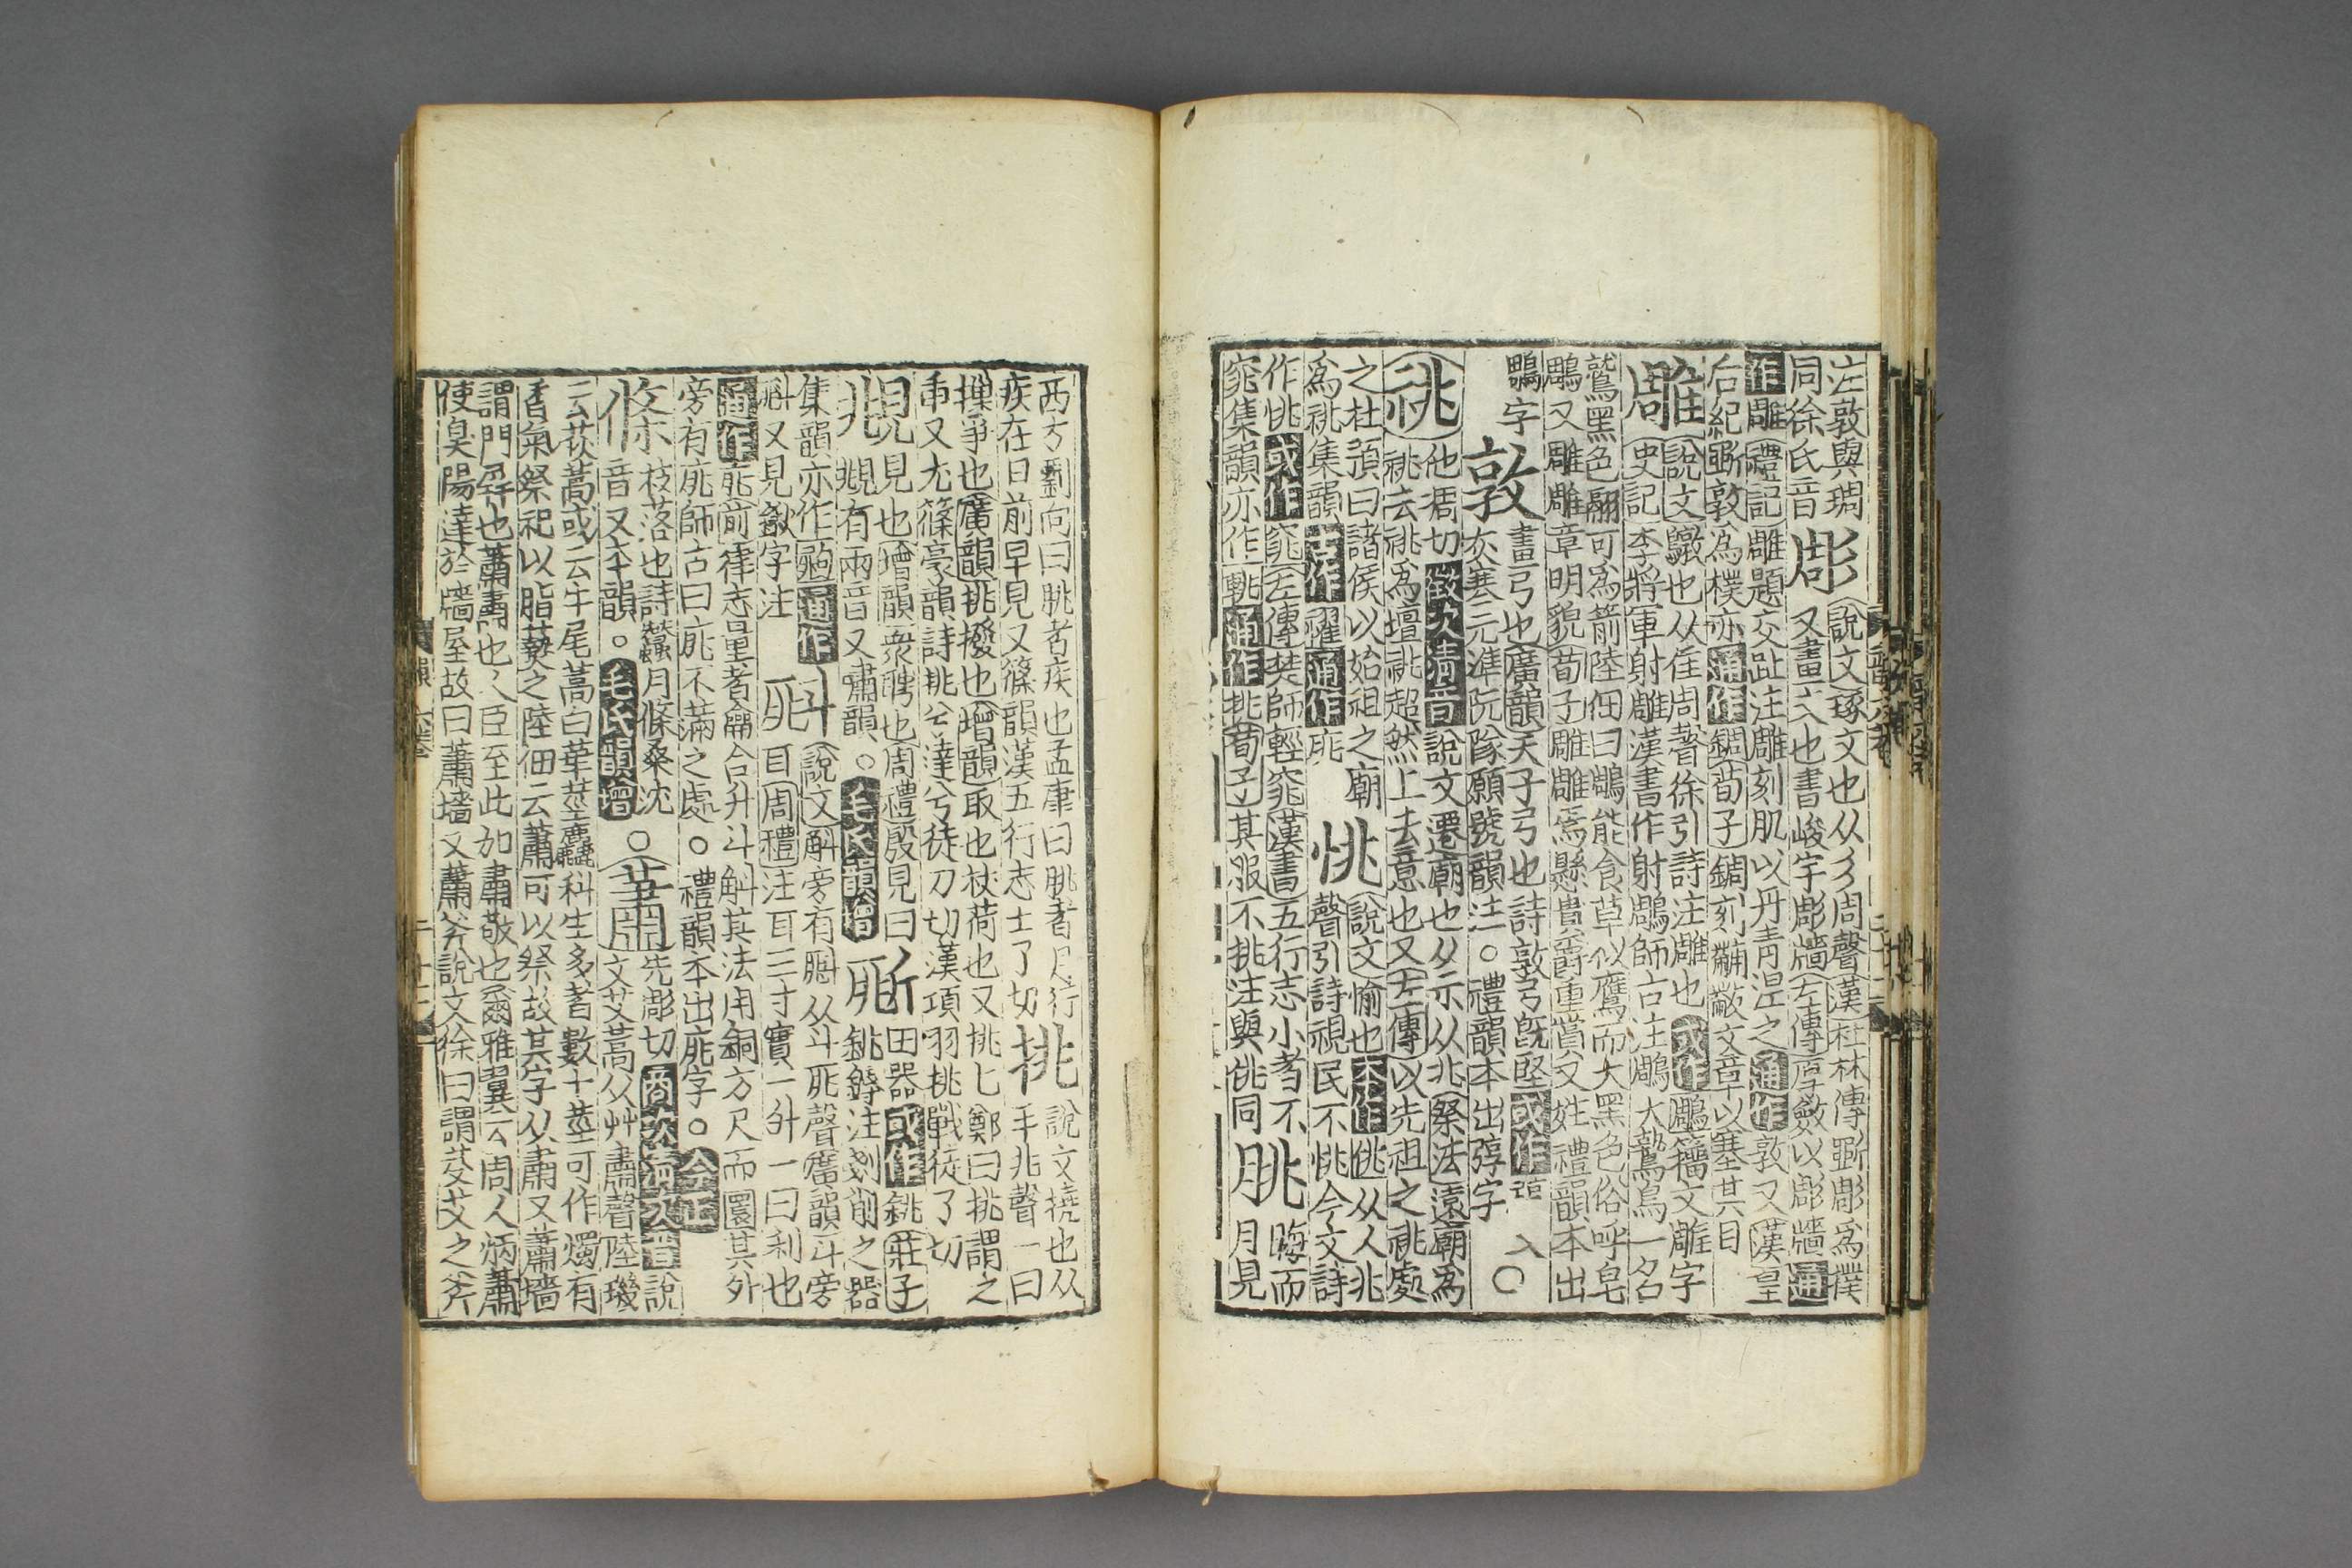 注敦與琱
同徐氏音彫說文琢文也从彡周聲漢杜林傳斲彫爲樸
又畫文也書峻宇彫牆左傳厚斂以彫牆通
作雕禮記雕題交趾注雕刻肌以丹青涅之通作敦又漢皇
后紀斲敦爲樸亦通作錭荀子錭刻黼黻文章以塞其目
雕說文鷻也从隹周聲徐引詩注雕也或作鵰籀文雕字
史記李將軍射雕漢書作射鵰師古注鵰大鷙鳥一名
鷲黑色翮可爲箭陸佃曰鵰能食草似鷹而大黑色俗呼皂
鵰又雕雕章明貌荀子雕雕焉懸貴爵重賞又姓禮韻本出
鵰字敦畫弓也廣韻天子弓也詩敦弓旣堅或作弴又
灰寒元準阮隊願號韻注○禮韻本出弴字○
祧他凋切徵次淸音說文遷廟也从示从兆祭法遠廟爲
祧去祧爲壇祧超然上去意也又左傳以先祖之祧處
之杜預曰諸侯以始祖之廟
爲祧集韻古作濯通作庣
恌說文愉也本作佻从人兆
聲引詩視民不恌今文詩
作恌或作窕左傳楚師輕窕漢書五行志小者不
窕集韻亦作䠷通作挑荀子其服不挑注與佻同朓晦而
月見
西方劉向曰朓者疾也孟康曰朓者月行
疾在日前早見又篠韻漢五行志士了切挑說文撓也从
手兆聲一曰
摷爭也廣韻挑撥也增韻取也杖荷也又挑七鄭曰挑謂之
又尤篠豪韻詩挑兮達兮徒刀切漢項羽挑戰徒了切
覜見也增韻衆聘也周禮殷見曰
覜有兩音又嘯韻○毛氏韻增
田器或作銚莊子
銚鎒注剗削之器
集韻亦作通作斛說文斛旁有从斗庣聲廣韻斗旁
耳又見字注耳周禮注耳三寸實一升一曰利也
通作庣前律志量者龠合升斗斛其法用銅方尺而圜其外
旁有庣師古曰庣不滿之處○禮韻本出庣字○今正
條枝落也詩蠶月條桑沈
音又本韻○毛氏韻增
○蕭先彫切商次淸次音說
文艾蒿从艸肅聲陸璣
云荻蒿或云牛尾蒿白華莖麤科生多者數十莖可作燭有
香氣祭祀以脂爇之陸佃云蕭可以祭故其字从肅又蕭墻
謂門屛也蕭肅也人臣至此加肅敬也爾雅翼云周人炳蕭
使臭陽達於墻屋故曰蕭墻又蕭斧說文徐曰謂芟艾之斧